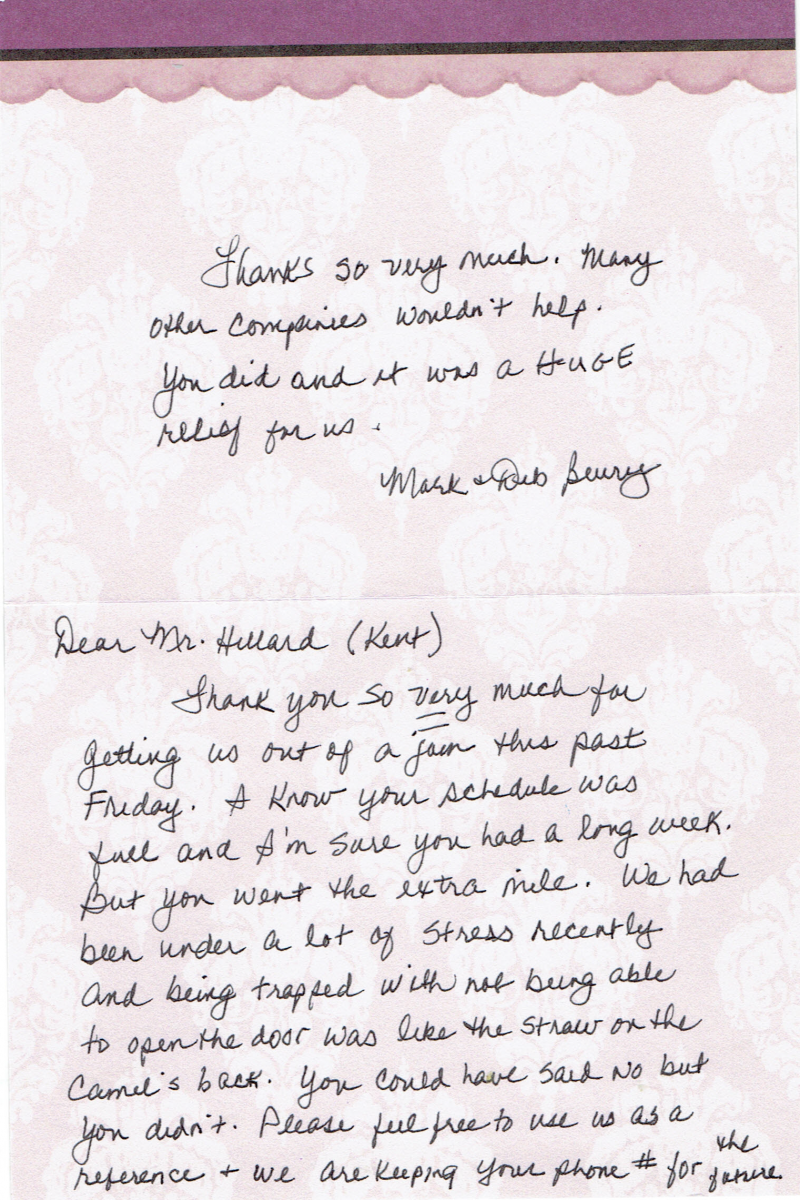 Thanks so very much. Many
other companies wouldn't help.
You did and it was a HUGE
relief for us.
Mark + Deb
Dear Mr. Hillard (Kent)
Thank you so very much for
getting us out of a jam this past
Friday. I know your schedule was
full and I'm sure you had a long week.
But you went the extra mile. We had
been under a lot of stress recently
and being trapped with not being able
to open the door was like the straw on the
Camel's back. You could have said No but
you didn't. Please feel free to use us as a
reference + we are keeping your phone # for the
future.